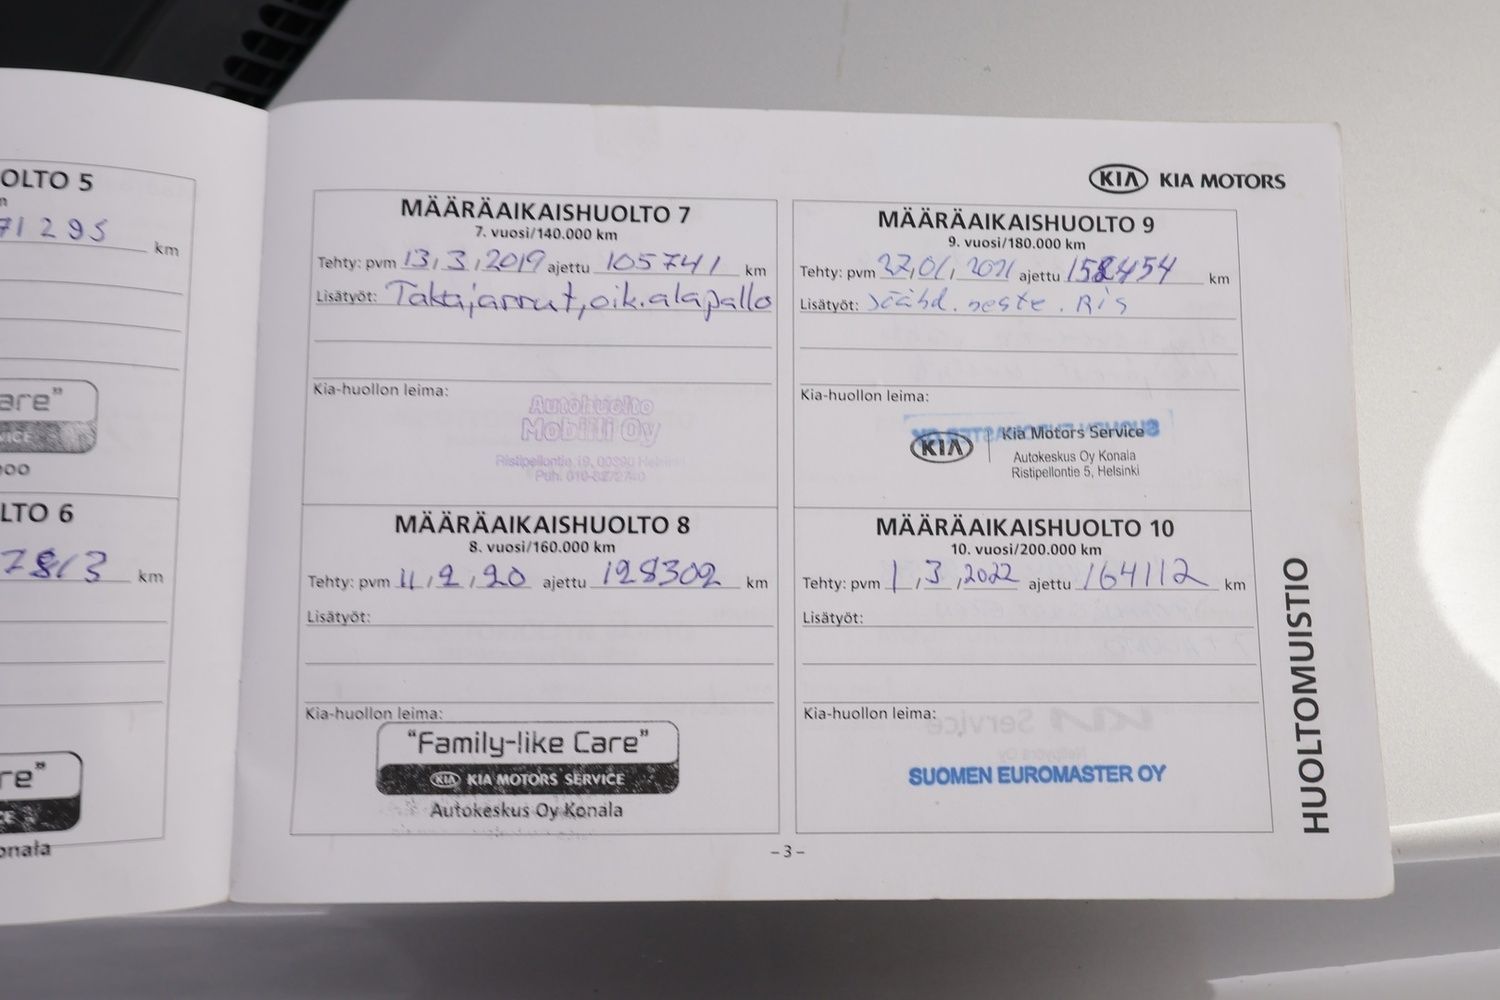 OLTO 5
71295 km
are"
VICE
LTO 6
7813 km
re"
CE
onala
KIA KIA MOTORS
MÄÄRÄAIKAISHUOLTO 7
7. vuosi/140.000 km
Tehty: pvm 13,3,2019 ajettu 105741 km
Lisätyöt: Takajarrut, oik. alapallo
Kia-huollon leima:
Autohuolto
Mobiili Oy
Ristipellontie 19, 00390 Helsinki
Puh. 010-8272740
MÄÄRÄAIKAISHUOLTO 8
8. vuosi/160.000 km
Tehty: pvm 11,2,20 ajettu 128302 km
Lisätyöt:
Kia-huollon leima:
"Family-like Care"
KIA KIA MOTORS SERVICE
Autokeskus Oy Konala
MÄÄRÄAIKAISHUOLTO 9
9. vuosi/180.000 km
Tehty: pvm 27,01,2021 ajettu 158454 km
Lisätyöt: Jäähd. neste.
Kia-huollon leima:
KIA Kia Motors Service
Autokeskus Oy Konala
Ristipellontie 5, Helsinki
MÄÄRÄAIKAISHUOLTO 10
10. vuosi/200.000 km
Tehty: pvm 1,3,2022 ajettu 164112 km
Lisätyöt:
Kia-huollon leima:
SUOMEN EUROMASTER OY
HUOLTOMUISTIO
– 3 –